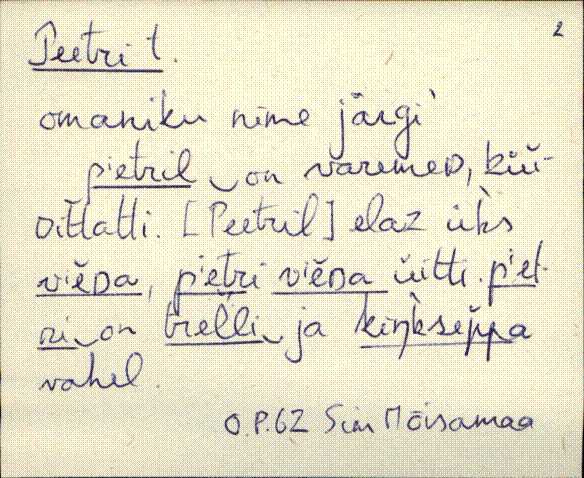 2
Peetri t.
omaniku nime järgi
pietril on varemeD,
[Peetril] elaz üks
viĕDa, pietri viĕDa üitti. piet-
ri on trelli ja kiŋkseppa
vahel.
O.P.62 Siim Mõisamaa